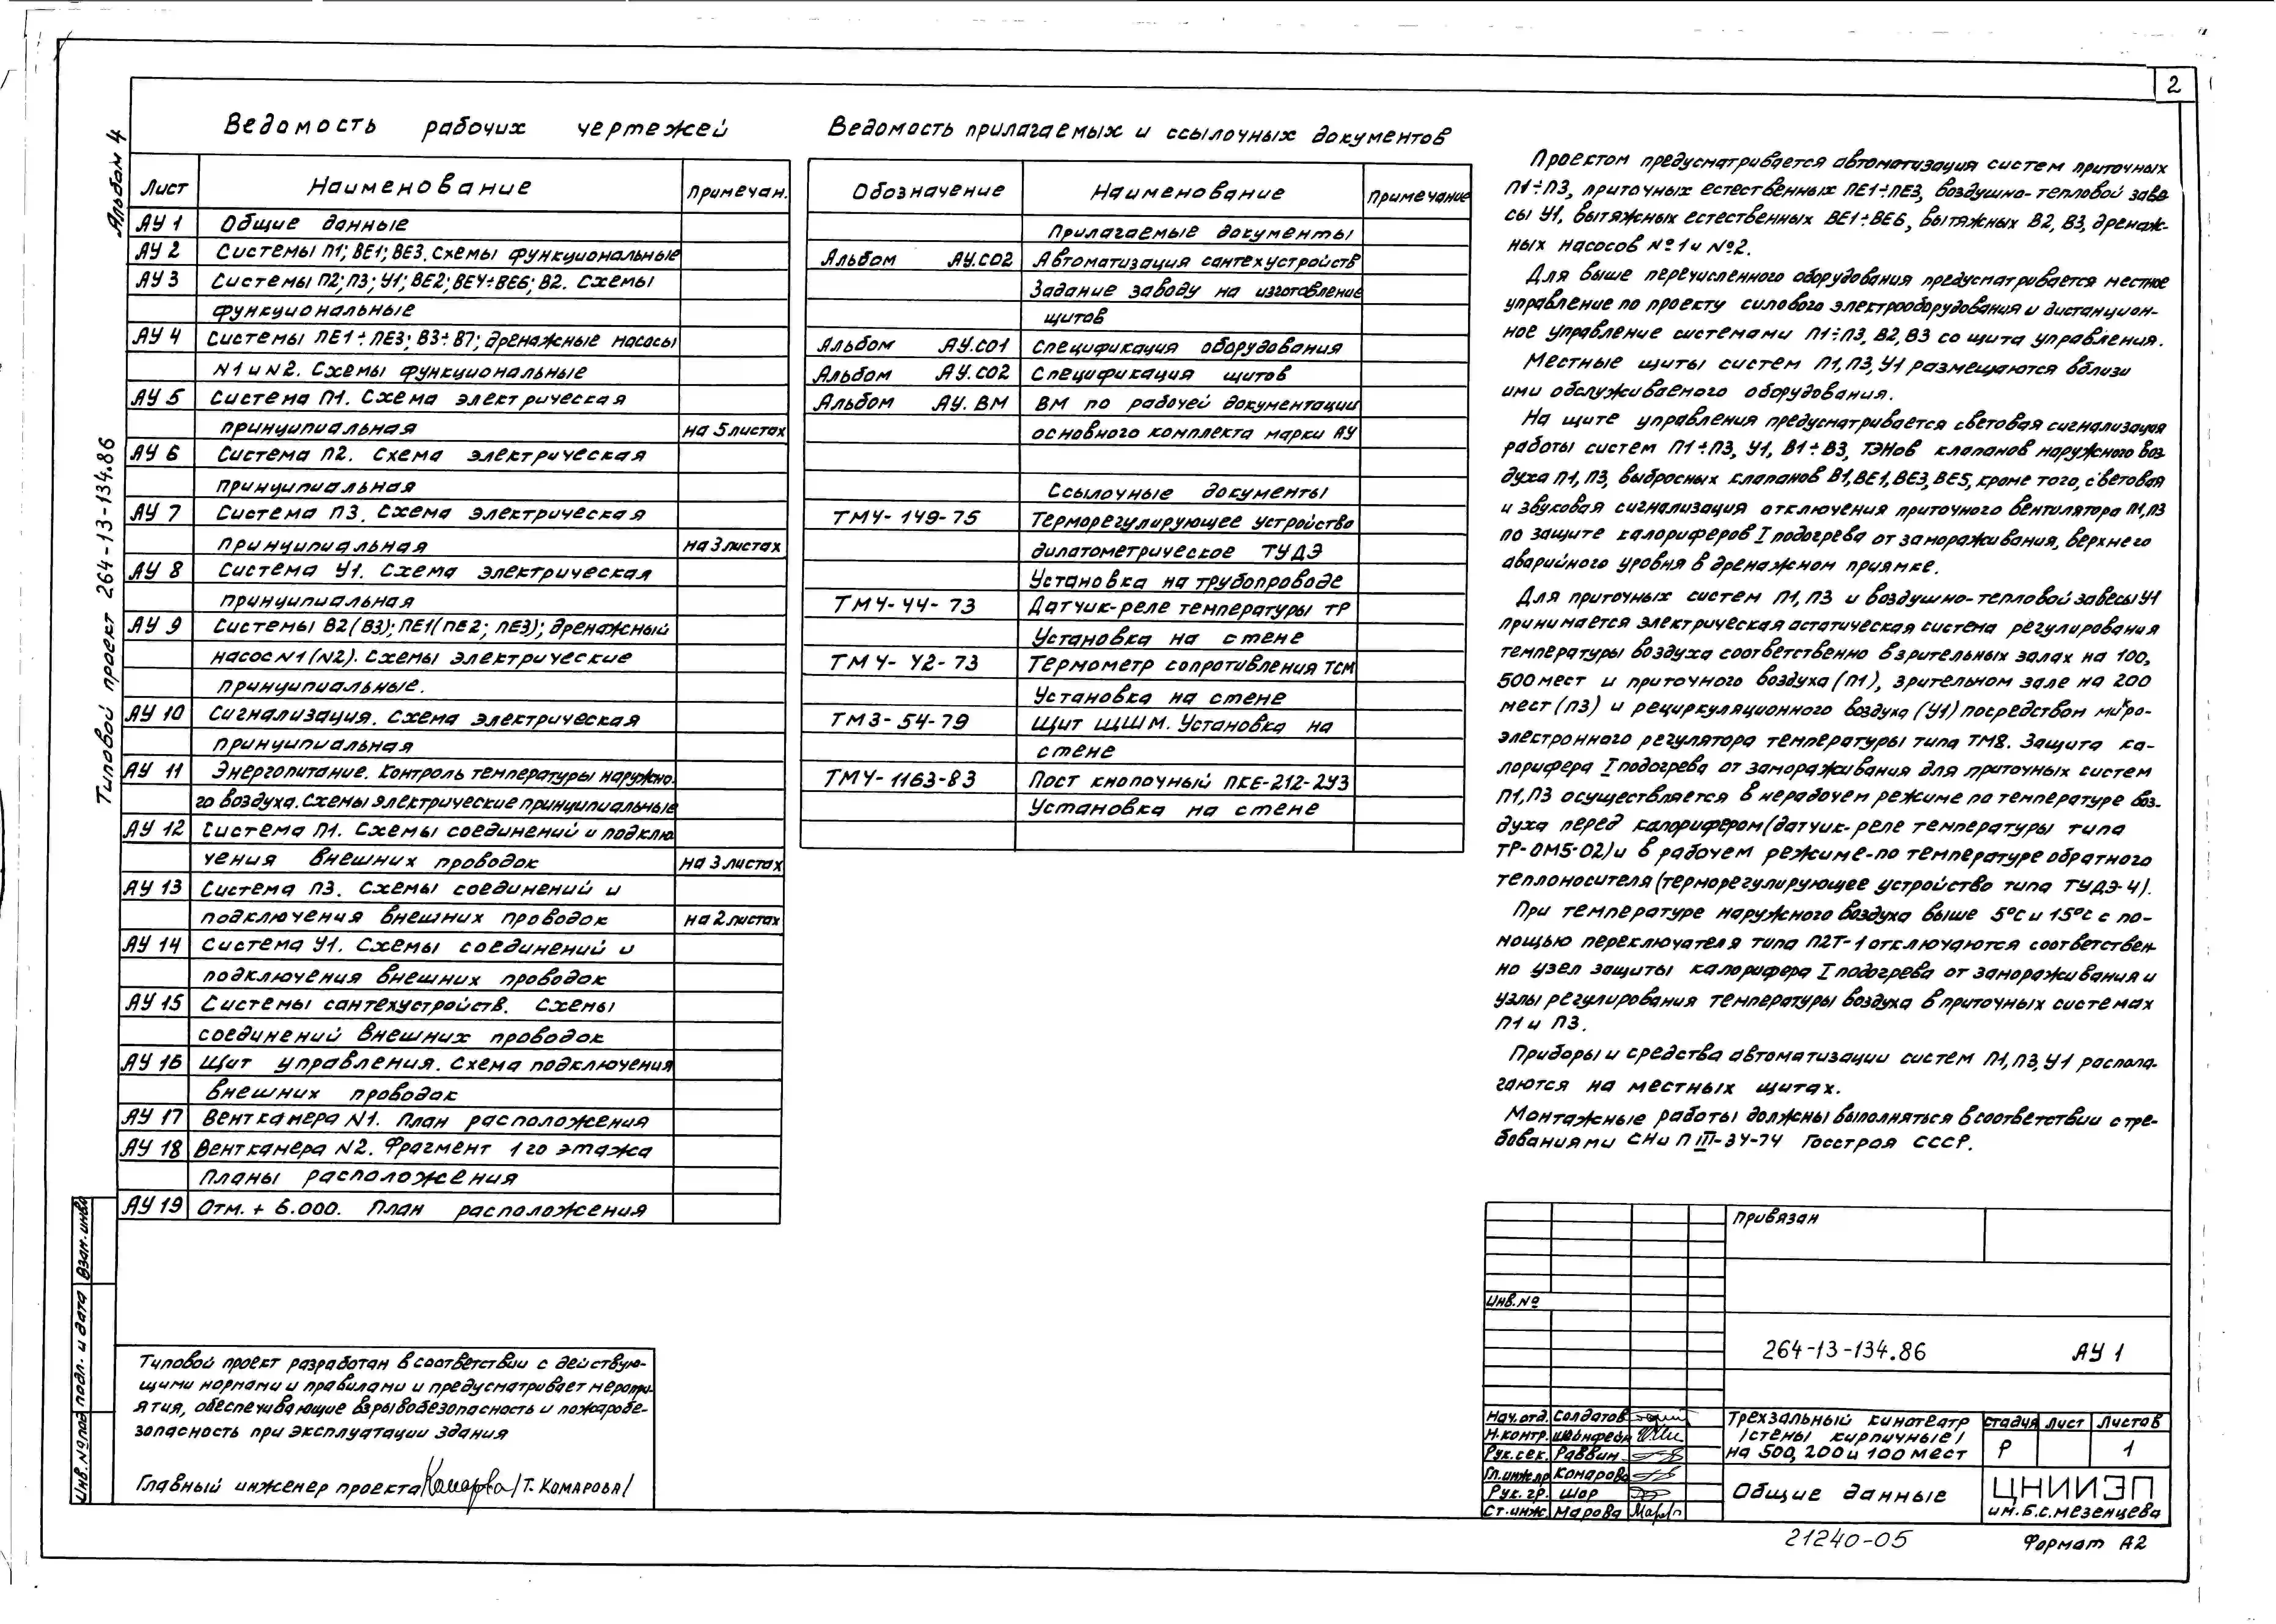 2
Альбом 4
Типовой проект 264-13-134.86
Ведомость рабочих чертежей
Лист Наименование Примечан.
АУ 1 Общие данные
АУ 2 Системы П1; ВЕ1; ВЕ3. Схемы функциональные
АУ 3 Системы П2; П3; У1; ВЕ2; ВЕ4÷ВЕ6; В2. Схемы
функциональные
АУ 4 Системы ПЕ1÷ПЕ3; В3÷В7; дренажные насосы
N1 и N2. Схемы функциональные
АУ 5 Система П1. Схема электрическая
принципиальная на 5 листах
АУ 6 Система П2. Схема электрическая
принципиальная
АУ 7 Система П3. Схема электрическая
принципиальная на 3 листах
АУ 8 Система У1. Схема электрическая
принципиальная
АУ 9 Системы В2(В3); ПЕ1(ПЕ2; ПЕ3); дренажный
насос N1 (N2). Схемы электрические
принципиальные.
АУ 10 Сигнализация. Схема электрическая
принципиальная
АУ 11 Энергопитание. Контроль температуры наружно-
го воздуха. Схемы электрические принципиальные
АУ 12 Система П1. Схемы соединений и подклю
чения внешних проводок на 3 листах
АУ 13 Система П3. Схемы соединений и
подключения внешних проводок на 2 листах
АУ 14 Система У1. Схемы соединений и
подключения внешних проводок
АУ 15 Системы сантехустройств. Схемы
соединений внешних проводок
АУ 16 Щит управления. Схема подключения
внешних проводок
АУ 17 Венткамера N1. План расположения
АУ 18 Венткамера N2. Фрагмент 1го этажа
Планы расположения
АУ 19 Отм. + 6.000. План расположения
Ведомость прилагаемых и ссылочных документов
Обозначение Наименование Примечание
Прилагаемые документы
Альбом АУ.СО2 Автоматизация сантехустройств
Задание заводу на изготовление
щитов
Альбом АУ.СО1 Спецификация оборудования
Альбом АУ.СО2 Спецификация щитов
Альбом АУ.ВМ ВМ по рабочей документации
основного комплекта марки АУ
Ссылочные документы
ТМ4-149-75 Терморегулирующее устройство
дилатометрическое ТУДЭ
Установка на трубопроводе
ТМ4-44-73 Датчик-реле температуры ТР
Установка на стене
ТМ4-42-73 Термометр сопротивления ТСМ
Установка на стене
ТМ3-54-79 Щит ЩШМ. Установка на
стене
ТМ4-1163-83 Пост кнопочный ПКЕ-212-2У3
Установка на стене
Проектом предусматривается автоматизация систем приточных
П1÷П3, приточных естественных ПЕ1÷ПЕ3, воздушно-тепловой заве-
сы У1, вытяжных естественных ВЕ1÷ВЕ6, вытяжных В2, В3, дренаж-
ных насосов №1 и №2.
Для выше перечисленного оборудования предусматривается местное
управление по проекту силового электрооборудования и дистанцион-
ное управление системами П1÷П3, В2, В3 со щита управления.
Местные щиты систем П1, П3, У1 размещаются вблизи
ими обслуживаемого оборудования.
На щите управления предусматривается световая сигнализация
работы систем П1÷П3, У1, В1÷В3, ТЭНов клапанов наружного воз-
духа П1, П3, выбросных клапанов В1, ВЕ1, ВЕ3, ВЕ5, кроме того, световая
и звуковая сигнализация отключения приточного вентилятора П1, П3
по защите калориферов I подогрева от замораживания, верхнего
аварийного уровня в дренажном приямке.
Для приточных систем П1, П3 и воздушно-тепловой завесы У1
принимается электрическая астатическая система регулирования
температуры воздуха соответственно в зрительных залах на 100,
500 мест и приточного воздуха (П1), зрительном зале на 200
мест (П3) и рециркуляционного воздуха (У1) посредством микро-
электронного регулятора температуры типа ТМ8. Защита ка-
лорифера I подогрева от замораживания для приточных систем
П1, П3 осуществляется в нерабочем режиме по температуре воз-
духа перед калорифером (датчик-реле температуры типа
ТР-ОМ5-02) и в рабочем режиме-по температуре обратного
теплоносителя (терморегулирующее устройство типа ТУДЭ-4).
При температуре наружного воздуха выше 5°С и 15°С с по-
мощью переключателя типа П2Т-1 отключаются соответствен-
но узел защиты калорифера I подогрева от замораживания и
узлы регулирования температуры воздуха в приточных системах
П1 и П3.
Приборы и средства автоматизации систем П1, П3, У1 распола-
гаются на местных щитах.
Монтажные работы должны выполняться в соответствии с тре-
бованиями СНиП III-34-74 Госстроя СССР.
Типовой проект разработан в соответствии с действую-
щими нормами и правилами и предусматривает меропри-
ятия, обеспечивающие взрывобезопасность и пожаробе-
зопасность при эксплуатации здания
Главный инженер проекта Комарова /Т. Комарова/
Инв.№ подл. Подл. и дата Взам.инв.
Привязан
Инв.№
264-13-134.86 АУ 1
Нач.отд. Солдатов
Н.контр. Шейнфейн
Рук.сек. Раввин
Гл.инж.пр Комарова
Рук. гр. Шор
Ст.инж. Марова
Трехзальный кинотеатр
/стены кирпичные/
на 500, 200 и 100 мест
Стадия Лист Листов
Р 1
Общие данные
ЦНИИЭП
им. Б.С. Мезенцева
21240-05
Формат А2